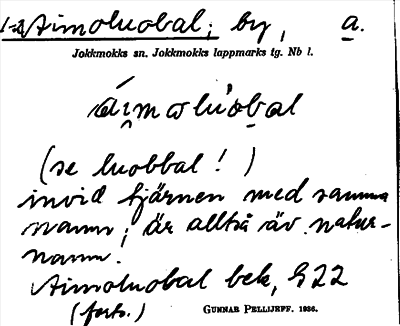 Aimoluobal; by, a.
Jokkmokks sn. Jokkmokks lappmarks tg. Nb l.
ái̯molui̓obal
(se luobbal!)
invid tjärnen med samma
namn; är alltså äv. natur-
namn.
Aimoluobal bek, G22
(forts.)
GUNNAR PELLIJEFF. 1936.